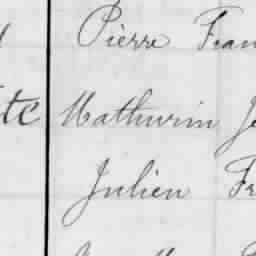 Pierre Fran
te Mathurin Je
Julien Fr